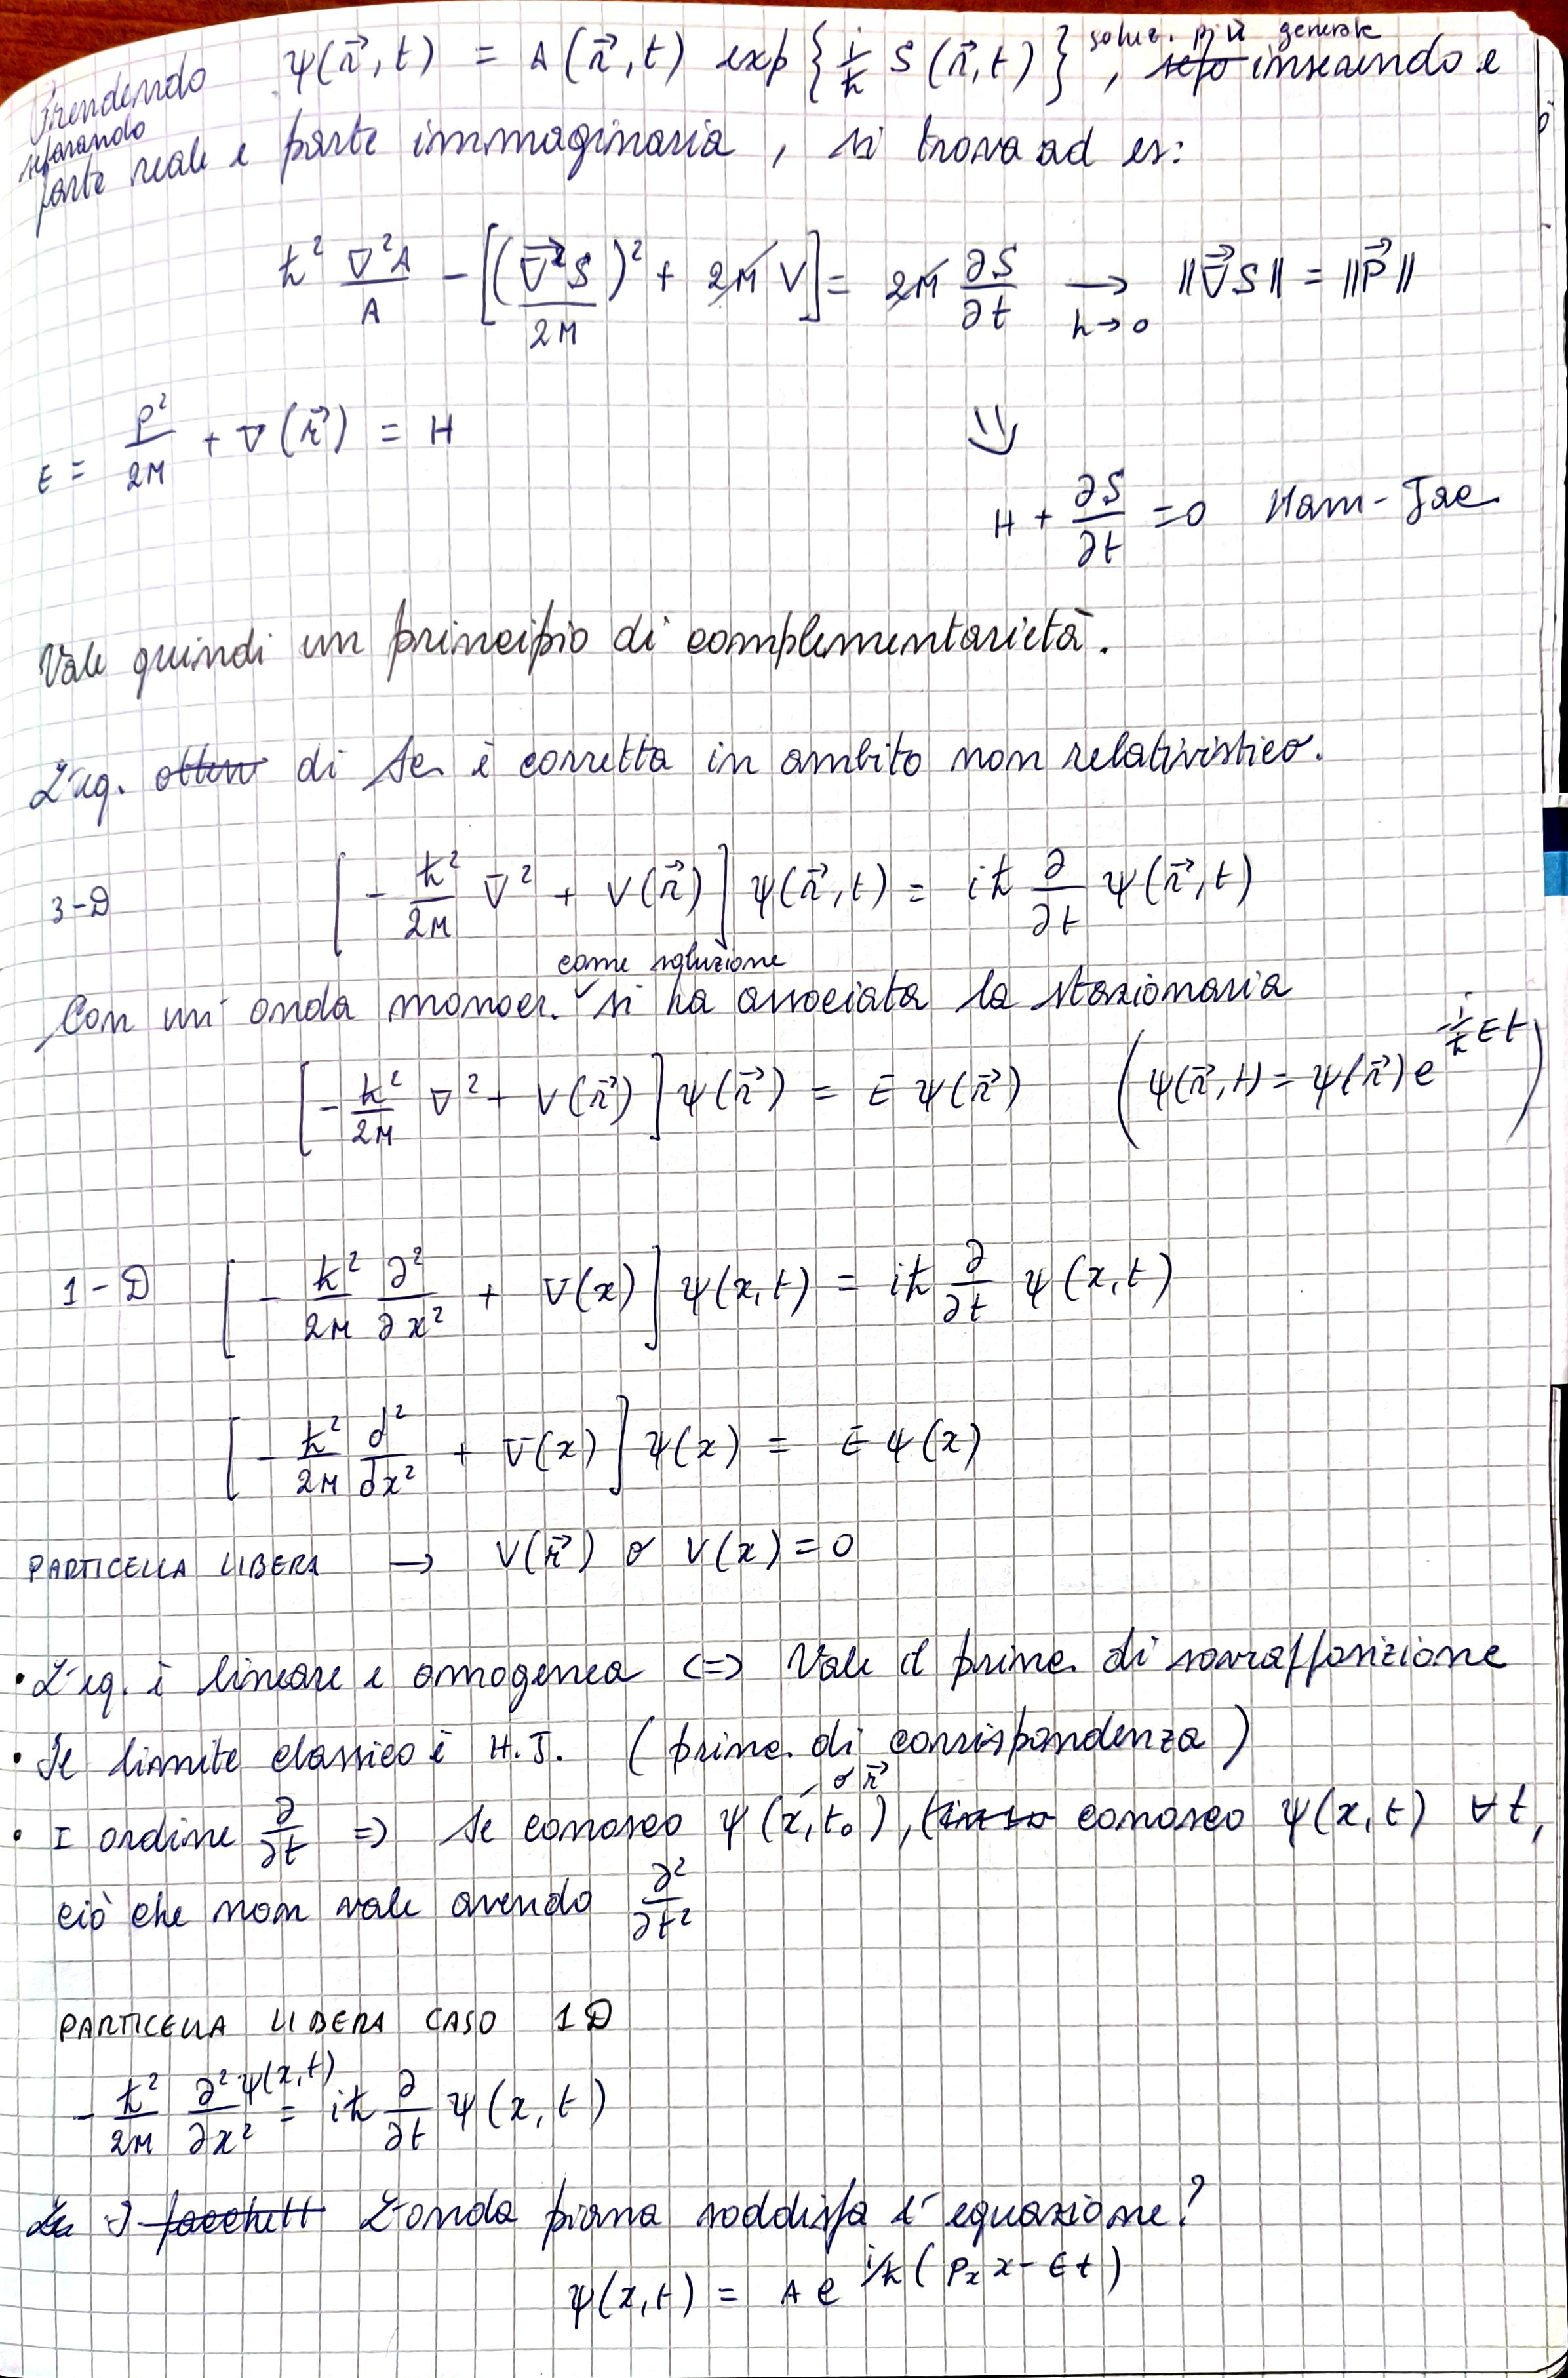 Prendendo ψ(r⃗,t) = A(r⃗,t) exp{i/ħ S(r⃗,t)} soluz. più generale, inserendo e
separando
parte reale e parte immaginaria, si trova ad es:
ħ² ∇²A/A - [(∇⃗²S)²/2M + 2M V] = 2M ∂S/∂t → h→0 ||∇⃗S|| = ||P⃗||
E = P²/2M + V(r⃗) = H ⇓
H + ∂S/∂t = 0 Ham-Jac
Vale quindi un principio di complementarietà.
L'eq. di Sc. è corretta in ambito non relativistico.
3-D [-ħ²/2M ∇² + V(r⃗)] ψ(r⃗,t) = iħ ∂/∂t ψ(r⃗,t)
come soluzione
Con un'onda monocr. si ha associata la stazionaria
[-ħ²/2M ∇² + V(r⃗)] ψ(r⃗) = E ψ(r⃗) (ψ(r⃗,t) = ψ(r⃗) e^{-i/ħ Et})
1-D [-ħ²/2M ∂²/∂x² + V(x)] ψ(x,t) = iħ ∂/∂t ψ(x,t)
[-ħ²/2M d²/dx² + V(x)] ψ(x) = E ψ(x)
PARTICELLA LIBERA → V(r⃗) o V(x) = 0
• L'eq. è lineare e omogenea <=> Vale il princ. di sovrapposizione
• Il limite classico è H.J. (princ. di corrispondenza)
o r⃗
• I ordine ∂/∂t => Se conosco ψ(x,t₀), conosco ψ(x,t) ∀t,
ciò che non vale avendo ∂²/∂t²
PARTICELLA LIBERA CASO 1D
-ħ²/2M ∂²ψ(x,t)/∂x² = iħ ∂/∂t ψ(x,t)
L'onda piana soddisfa l'equazione?
ψ(x,t) = A e^{i/ħ(Pₓx-Et)}